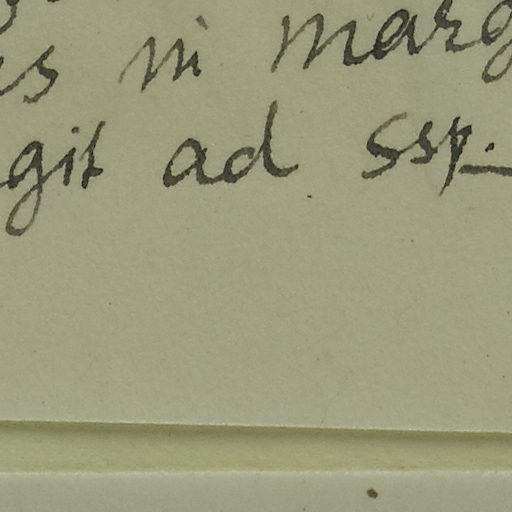 es in marg
git ad ssp.